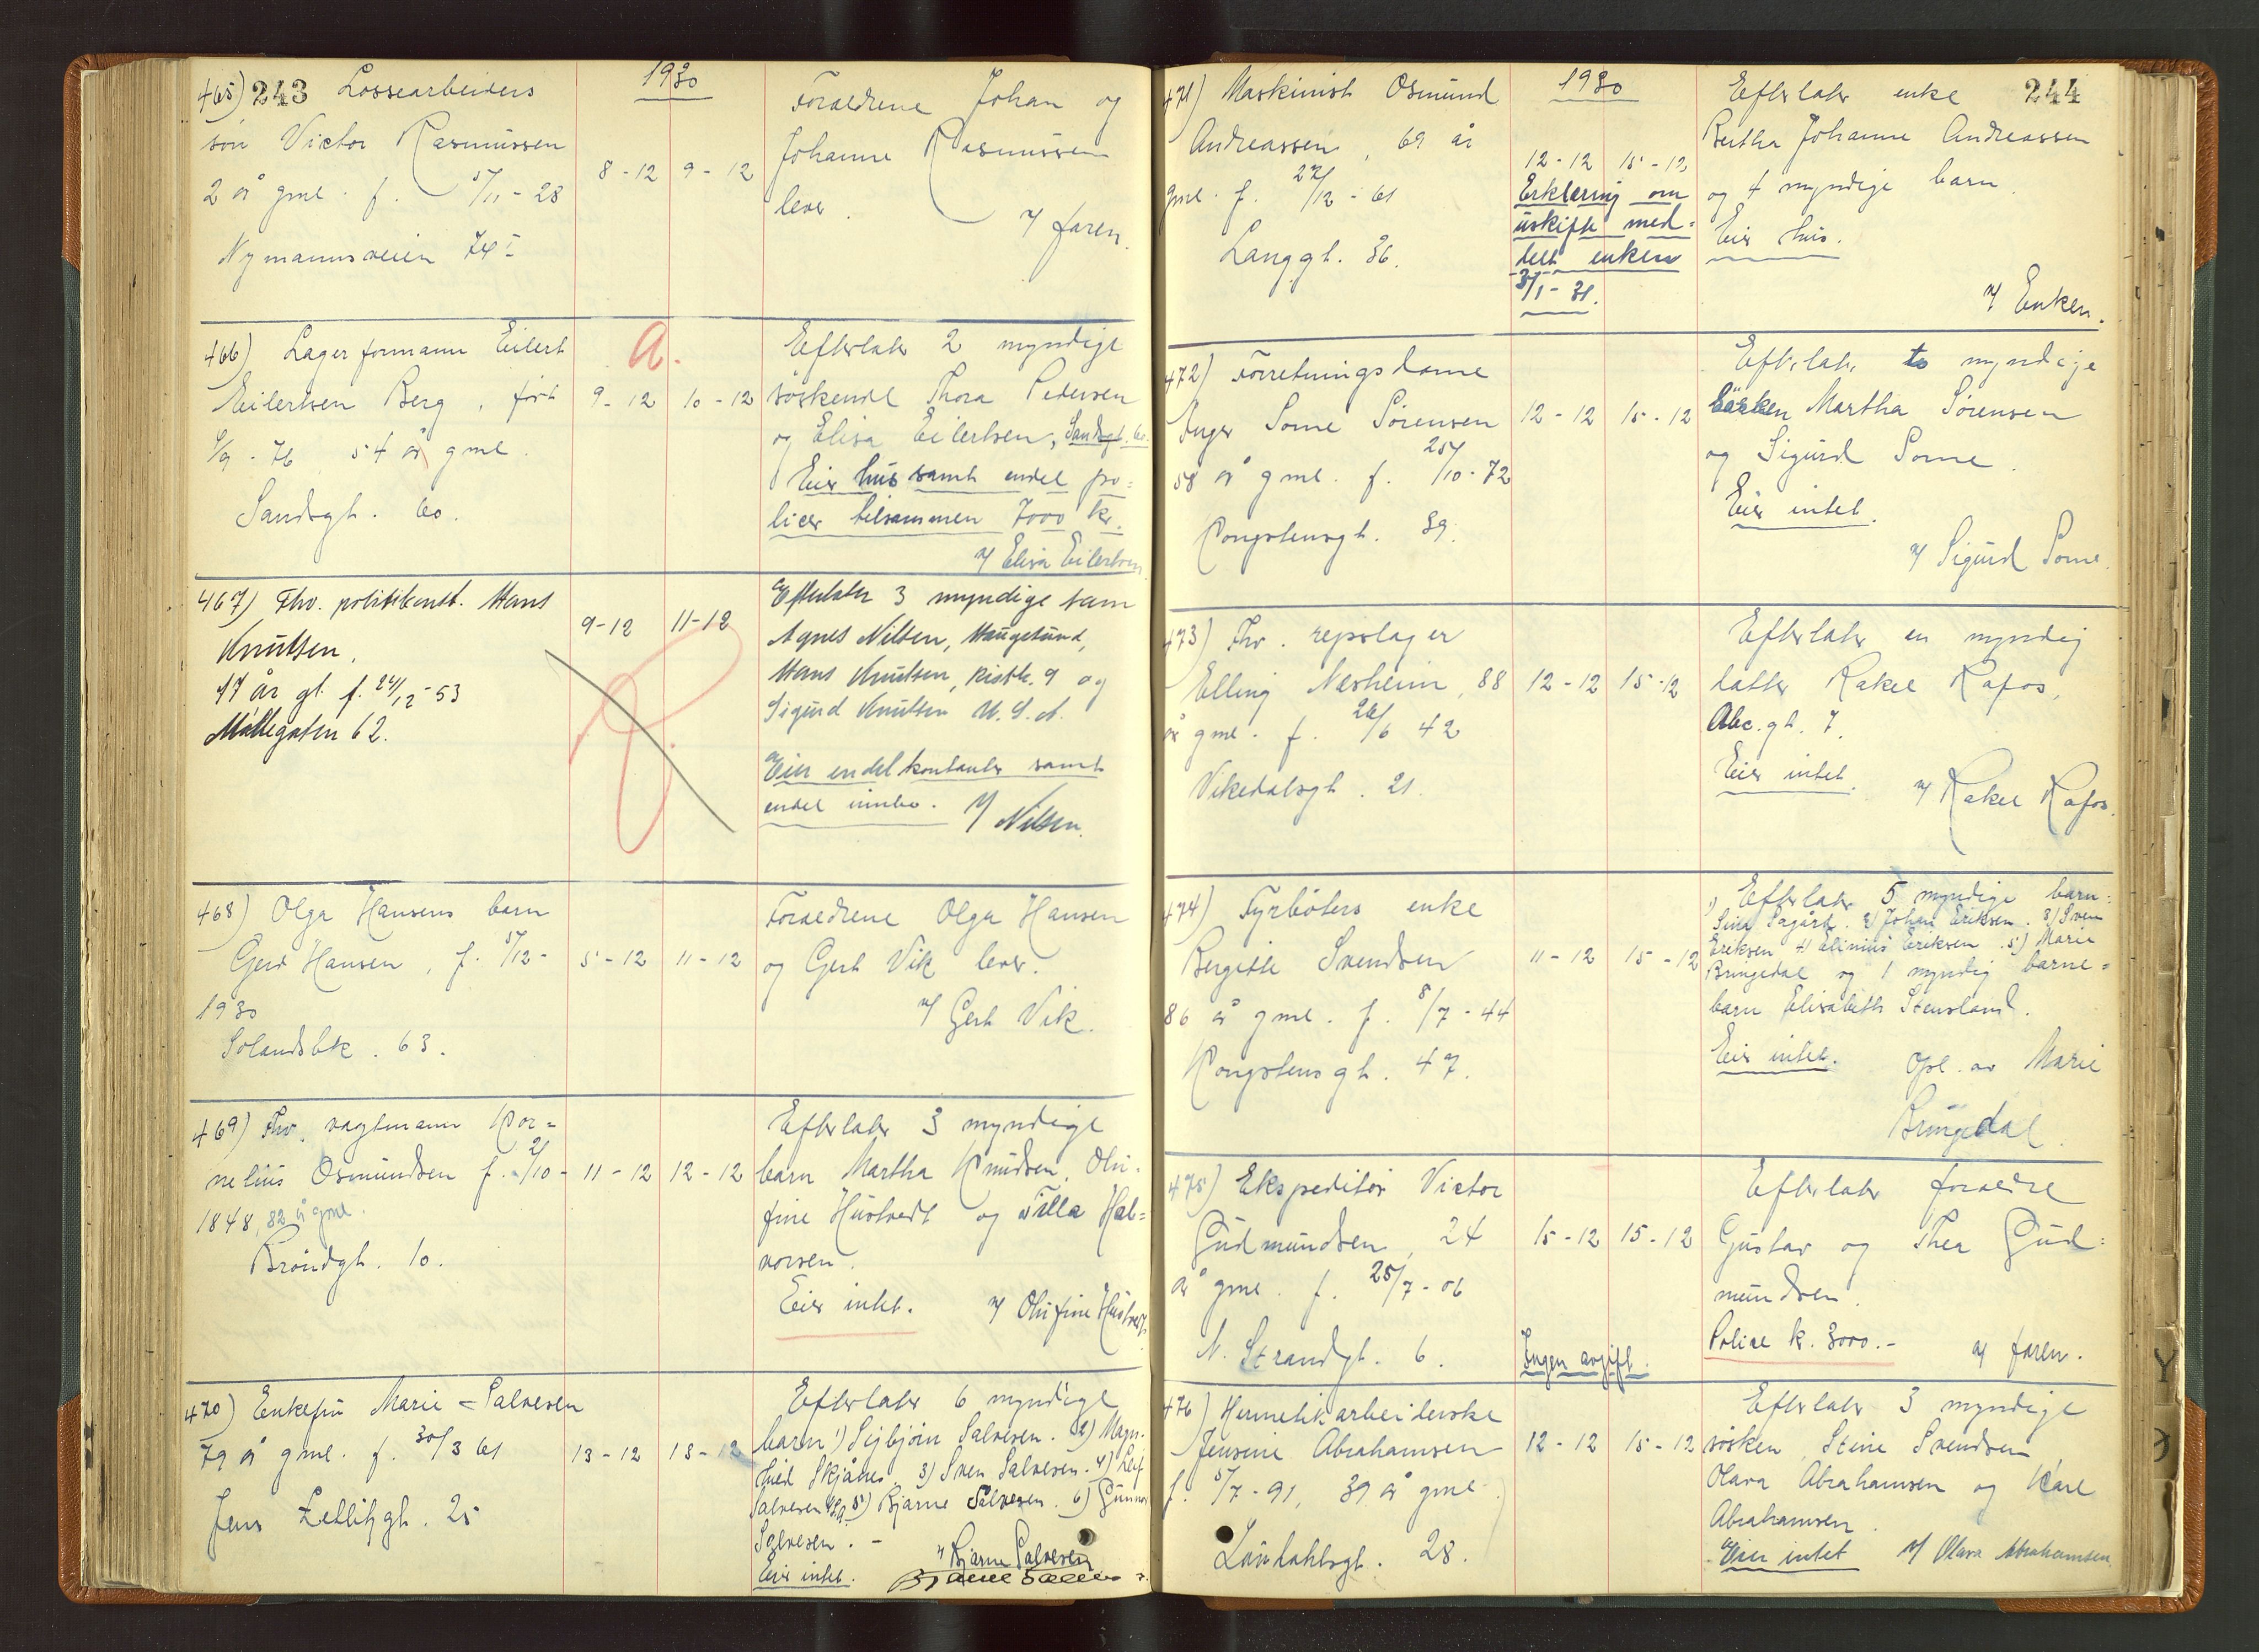 243
465) Lossearbeiders
søn Victor Rasmussen
2 år gml. f. 5/11-28
Nymannsveien 74 I
1930
8-12 9-12
Foreldrene Johan og
Johanne Rasmussen
lever.
v/ faren.
466) Lagerformann Eilert
Eilertsen Berg, født
6/9-76 54 år gml.
Sandsgt. 60.
a.
9-12 10-12
Efterlater 2 myndige
søskende Thora Pedersen
og Elisa Eilertsen, Sandsgt. 60.
Eier hus samt endel po=
licer tilsammen 7000 kr.
v/ Elisa Eilertsen
467) Fhv. politikonst. Hans
Knutsen.
77 år gl. f. 24/12-53
Møllegaten 62.
9-12 11-12
Efterlater 3 myndige barn
Agnes Nilsen, Haugesund,
Hans Knutsen, 9 og
Sigurd Knutsen U.S.A.
Eier endel kontanter samt
endel innbo. v/ Nilsen.
468) Olga Hansens barn
Gerd Hansen, f. 5/12-
1930
Solandsbk. 63.
5-12 11-12
Foreldrene Olga Hansen
og Gert Vik lever.
v/ Gert Vik.
469) Fhv. vagtmann Kor=
nelius Osmundsen f. 21/10-
1848, 82 år gml.
Brøndgt. 10.
11-12 12-12
Efterlater 3 myndige
barn Martha Knudsen, Olu-
fine Hustvedt og Tilla Hal=
vorsen.
Eier intet. v/ Olufine Hustvedt
470) Enkefru Marie Salvesen
79 år gml. f. 30/3 61
Jens Zetlitzgt. 25
13-12 13-12
Efterlater 6 myndige
barn 1) Sigbjørn Salvesen. 2) Magn-
hild Skjånes. 3) Sven Salvesen. 4) Leif
Salvesen USA 5) Bjarne Salvesen. 6) Gunnar
Salvesen. -
Eier intet. v/ Bjarne Salvesen
244
471) Maskinist Osmund
Andreassen, 69 år
gml. f. 27/12-61
Langgt. 36.
1930
12-12 15-12
Erklæring om
uskifte med=
delt enken
3/1-31.
Efterlater enke
Bertha Johanne Andreassen
og 4 myndige barn.
Eier hus.
v/ Enken.
472) Forretningsdame
Inger Somme Sørensen
58 år gml. f. 25/10-72
Kongstensgt. 39.
12-12 15-12
Efterlater to myndige
søsken Martha Sørensen
og Sigurd Somme.
Eier intet.
v/ Sigurd Somme.
473) Fhv. repslager
Elling Nesheim, 88
år gml. f. 26/6 42
Vikedalsgt. 21.
12-12 15-12
Efterlater en myndig
datter Rakel Rafos,
Abc.gt. 7.
Eier intet.
v/ Rakel Rafos.
474) Fyrbøters enke
Bergitte Svendsen
86 år gml. f. 8/7-44
Kongstensgt. 47.
11-12 15-12
Efterlater 5 myndige barn:
1) Sina 2) Johan Eriksen. 3) Sven
Eriksen 4) Elinius Eriksen. 5) Marie
Bringedal og 1 myndig barne=
barn Elisabeth Stensland.
Eier intet. Opl. av Marie
Bringedal.
475) Ekspeditør Victor
Gudmundsen, 24
år gml. f. 25/7-06
N. Strandgt. 6.
15-12 15-12
Ingen avgift.
Efterlater foreldre
Gustav og Thea Gud=
mundsen.
Police k. 3000.-
v/ faren.
476) Hermetikarbeiderske
Jensine Abrahamsen
f. 5/7-91, 39 år gml.
28.
12-12 15-12
Efterlater 3 myndige
søsken, Stine Svendsen
Olava Abrahamsen og Karl
Abrahamsen.
Eier intet v/ Olava Abrahamsen.